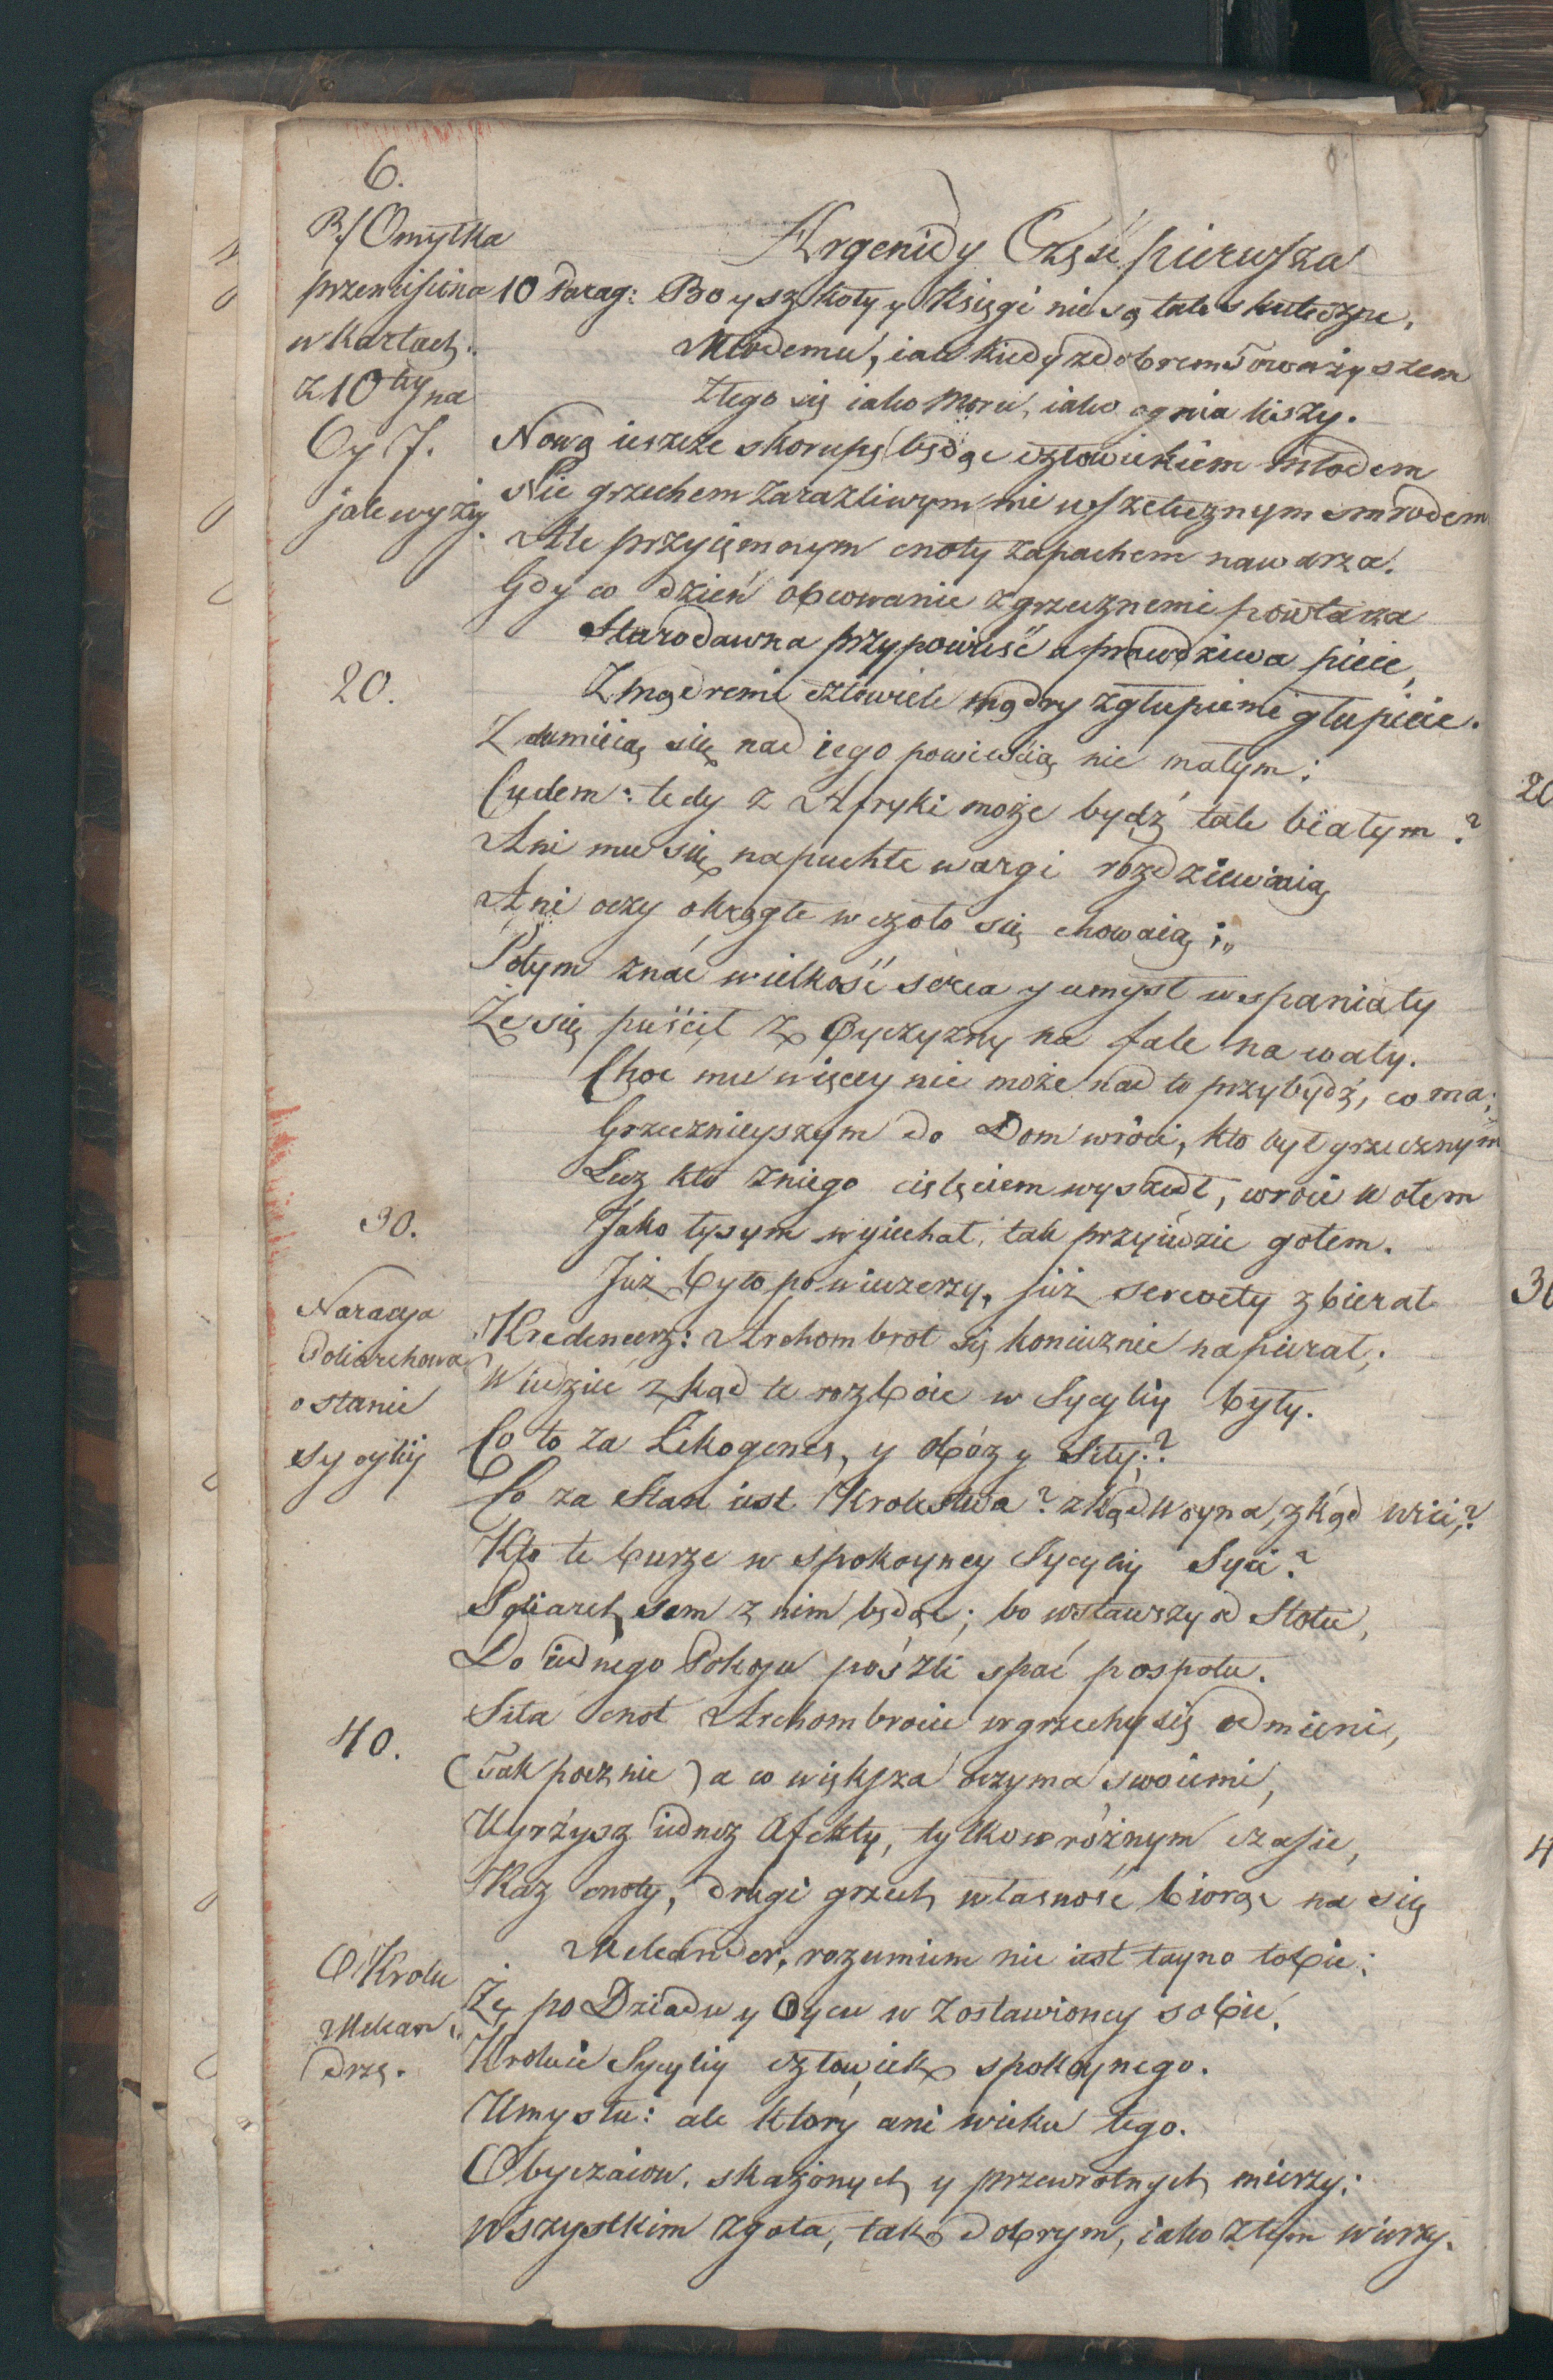 6.
Argenidy Część pierwsza
R/ Omyłka
przeniesiona
w kartach.
z 10tey na
Cy 7.
jak wyżej.
10 Parag: Bo y szkoły y Księgi nie są tak skuteczne,
Młodemu, iak kiedy z dobrem Towarzyszem
Złego się iako Moru, iako ognia kiszy.
Nową ieszcze skorupę będąc człowiekiem młodem
Nie grzechem zaraźliwym nie wszetecznym smrodem
Ale przyięmnym cnoty zapachem nawarza.
Gdy co dzień obcowanie z grzecznemi powtarza
Starodawna przypowieść a prawdziwa pieie,
20.
Z mądremi człowiek mądry z głupiemi głupieie.
Zdumieią się nad iego powieścią nie małym:
Cudem: tedy z Afryki może bydź tak białym?
Ani mu się napuchłe wargi rozdziewaią
Ani oczy okrągłe w czoło się chowaią;,,
Potym znać wielkość serca y umysł wspaniały
Że się puścił z Oyczyzny na fale na wały.
Choc mu więcey nie może nad to przybydź, co ma;
Grzecznieyszym do Dom wróci, kto był grzecznym
Lecz kto zniego cielęciem wyszedł, wroci wołem
30.
Jako łysym wyiechał, tak przyiedzie gołem.
Już było po wieczerzy, już serwety zbierał
Naracya
Poliarchowa
o stanie
Sycylij
Kredencerz: Archombrot się koniecznie napierał;
Wiedzieć zkąd te rozboie w Sycyliy były.
Co to za Likogenes, y obóz y Siły;?
Co za Stan iest Krolestwa? zkąd Woyna, zkąd wici,?
Kto te burze w spokoyney Sycyliy Syci?
Poliarch sem z nim będąc; bo wstawszy od Stołu,
Do iednego Pokoju poszli spać pospołu.
Siła cnot Archombrocie w grzechy się odmieni,
40.
(Tak pocznie) a co większa oczyma swoiemi,
Uyrżysz iednoż Afekty, tylko w różnym czasie,
Raz cnoty, drugi grzech własność biorąc na się
Meleander, rozumiem nie iest tayno tobie;
O Krolu
Melean,,
drze.
Że po Dziadu y Oycu w zostawioney sobie,
Kroluie Sycyliy człowiek spokoynego.
Umysłu: ale ktory ani wieku tego.
Obyczaiow, skażonych y przewrotnych mierzy;
Wszystkim zgoła, tak dobrym, iako złym wierzy.